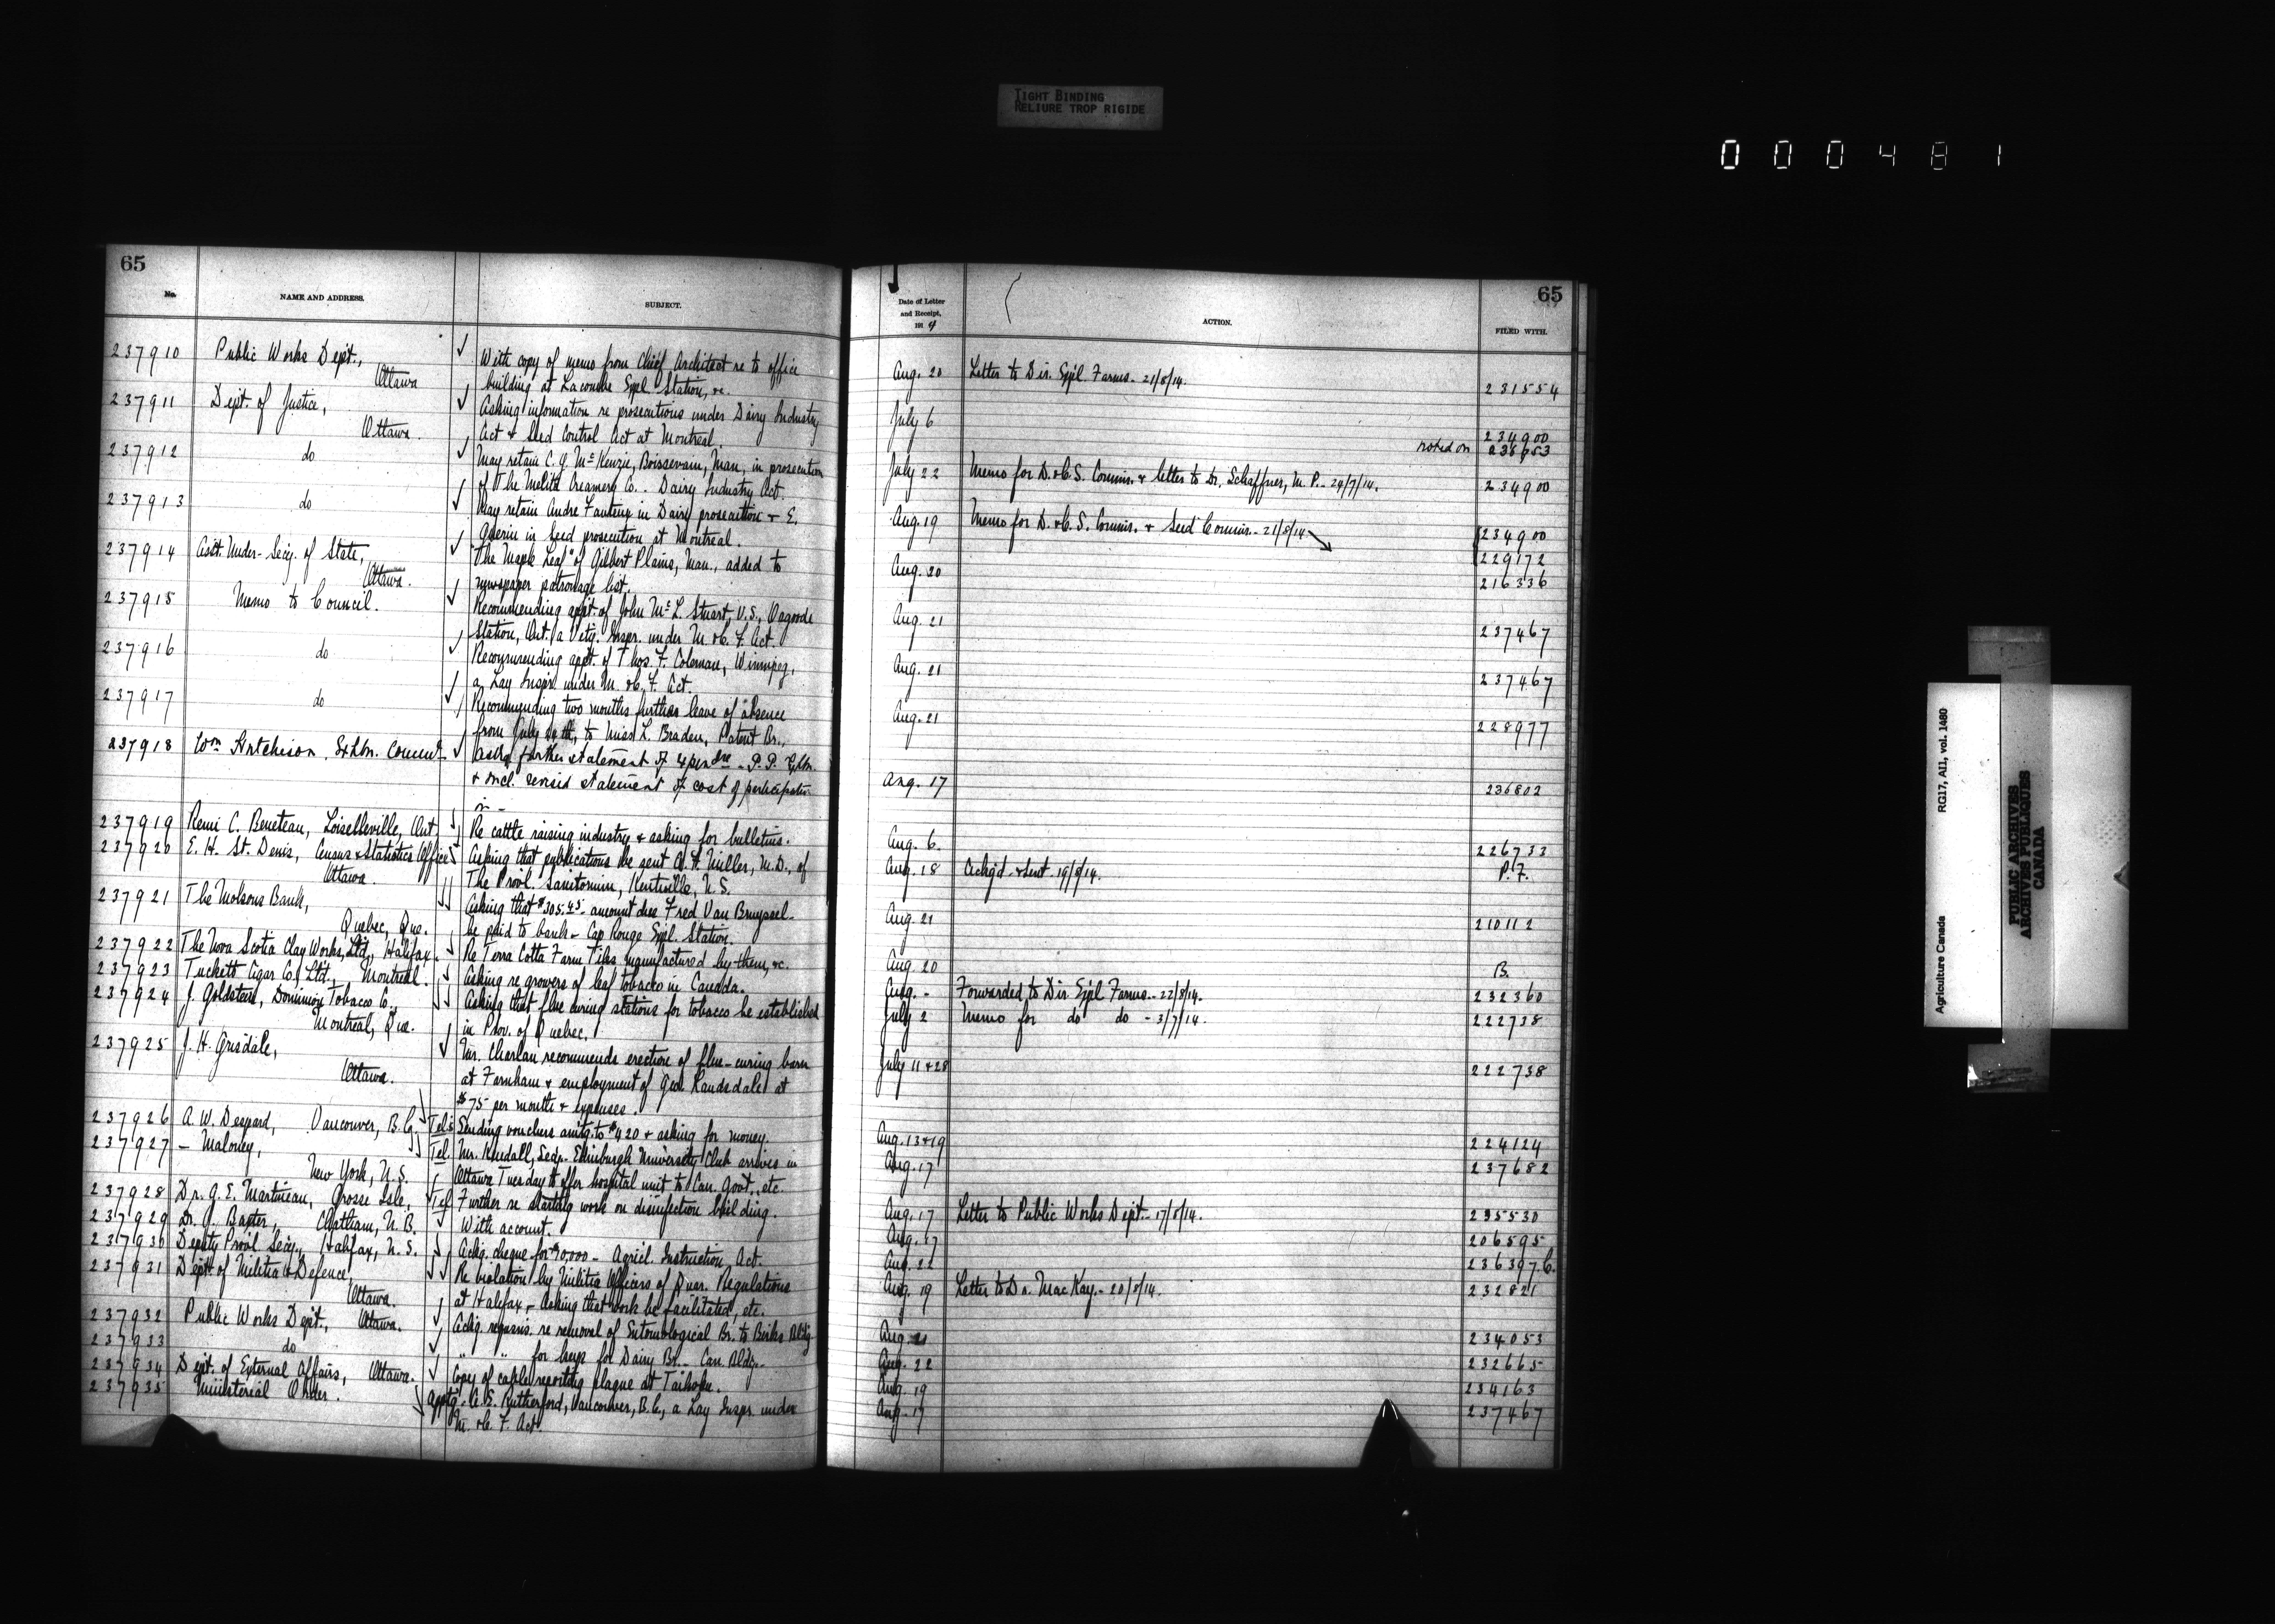 TIGHT BINDING
RELIURE TROP RIGIDE
000481
65
No.
NAME AND ADDRESS.
SUBJECT.
237910 Public Works Dept., ✓ With copy of memo from Chief Architect re to office
Ottawa building at Lacombe Expl. Station, &c.
237911 Dept. of Justice, ✓ Asking information re prosecutions under Dairy Industry
Ottawa. Act & Seed Control Act at Montreal.
237912 do ✓ May retain C. G. McKenzie, Boissevain, Man, in prosecution
of The Melita Creamery Co.. Dairy Industry Act.
237913 do ✓ May retain Andre Fauteux in Dairy prosecution & E.
Guerin in Seed prosecution at Montreal.
237914 Asst. Under-Secy. of State, ✓ "The Maple Leaf" of Gilbert Plains, Man., added to
Ottawa. newspaper patronage list.
237915 Memo to Council. ✓ Recommending appt of John McL. Stuart, V.S., Osgoode
Station, Ont. a Vety. Inspr. under M. & C. F. Act.
237916 do ✓ Recommending appt. of Thos. F. Coleman, Winnipeg,
a Lay Inspr. under M. & C. F. Act.
237917 do ✓ Recommending two months further leave of absence
from July to Miss L. Braden, Patent Br.,
237918 Wm Hutchison. Exhbn. Commr. ✓ further statement of P.P. Exbn.
& incl. revised statement of cost of participation
in -
237919 Remi C. Beneteau, Loiselleville, Ont. ✓ Re cattle raising industry & asking for bulletins.
237920 E. H. St. Denis, Census & Statistics Office ✓ Asking that publications be sent A. F. Miller, M.D., of
Ottawa. The Provl. Sanitorium, Kentville, N.S.
237921 The Molsons Bank, ✓ Asking that $305.45 amount due Fred Van Bruyssel
Quebec, Que. be paid to bank - Cap Rouge Expl. Station.
237922 The Nova Scotia Clay Works, Ltd., Halifax. ✓ Re Terra Cotta Farm Tiles manufactured by them, &c.
237923 Tuckett Cigar Co. Ltd., Montreal. ✓ Asking re growers of leaf tobacco in Canada.
237924 J. Goldstein, Dominion Tobacco Co., ✓ Asking that flue curing stations for tobacco be established
Montreal, Que. in Prov. of Quebec.
237925 J. H. Grisdale, ✓ Mr. Charlan recommends erection of flue-curing barn
Ottawa. at Farnham & employment of Geo. Ransdale at
$75 per month & expenses.
237926 A. W. Despard, Vancouver, B.C. Tels Sending vouchers amtg. to $420 & asking for money.
237927 - Maloney, Tel. Mr. Kendall, Secy. Edinburgh University Club arrives in
New York, U.S. Ottawa Tuesday to offer hospital unit to Can. Govt., etc.
237928 Dr. G. E. Martineau, Grosse Isle, Tel Further re starting work on disinfection building.
237929 Dr. J. Baxter, Chatham, N.B. ✓ With account.
237930 Deputy Provl. Secy., Halifax, N.S. ✓ Ackg. cheque for $10,000 - Agricl. Instruction Act.
237931 Dept. of Militia & Defence, ✓ Re violation by Militia Officers of Quar. Regulations
Ottawa. at Halifax, - Asking that work be facilitated, etc.
237932 Public Works Dept., Ottawa. ✓ Ackg. requsn. re removal of Entomological Br. to Birks Bldg.
237933 do ✓ " " for keys for Dairy Br. - Can. Bldg.-
237934 Dept. of External Affairs, Ottawa. ✓ Copy of cable reporting plague at Taihoku.
237935 Ministerial Order. Apptg. A.S. Rutherford, Vancouver, B.C., a Lay Inspr. under
M. & C. F. Act.
65
Date of Letter
and Receipt,
1914
ACTION.
FILED WITH.
Aug. 20 Letter to Dir. Expl. Farms - 21/8/14. 231554
July 6 234900
noted on 238653
July 22 Memo for D. & C. S. Commr. & letter to Dr. Schaffner, M.P. - 24/7/14. 234900
Aug. 19 Memo for D. & C. S. Commr. & Seed Commr. - 21/8/14 234900
229172
Aug. 20 216336
Aug. 21 237467
Aug. 21 237467
Aug. 21 228977
Aug. 17 236802
Aug. 6. 226733
Aug. 18 Ackg'd. & sent - 19/8/14. P.F.
Aug. 21 210112
Aug. 20 B.
Aug. - Forwarded to Dir. Expl Farms - 22/8/14. 232360
July 2 Memo for do do - 3/7/14. 222738
July 11 & 28 222738
Aug. 13 & 19 224124
Aug. 17 237682
Aug. 17 Letter to Public Works Dept. - 17/8/14. 235530
Aug. 17 206595
Aug. 22 236397.C.
Aug. 19 Letter to Dr. MacKay. - 20/8/14. 232821
Aug. 21 234053
Aug. 22 232665
Aug. 19 234163
Aug. 17 237467
Agriculture Canada RG17, AII, vol. 1480
PUBLIC ARCHIVES
ARCHIVES PUBLIQUES
CANADA